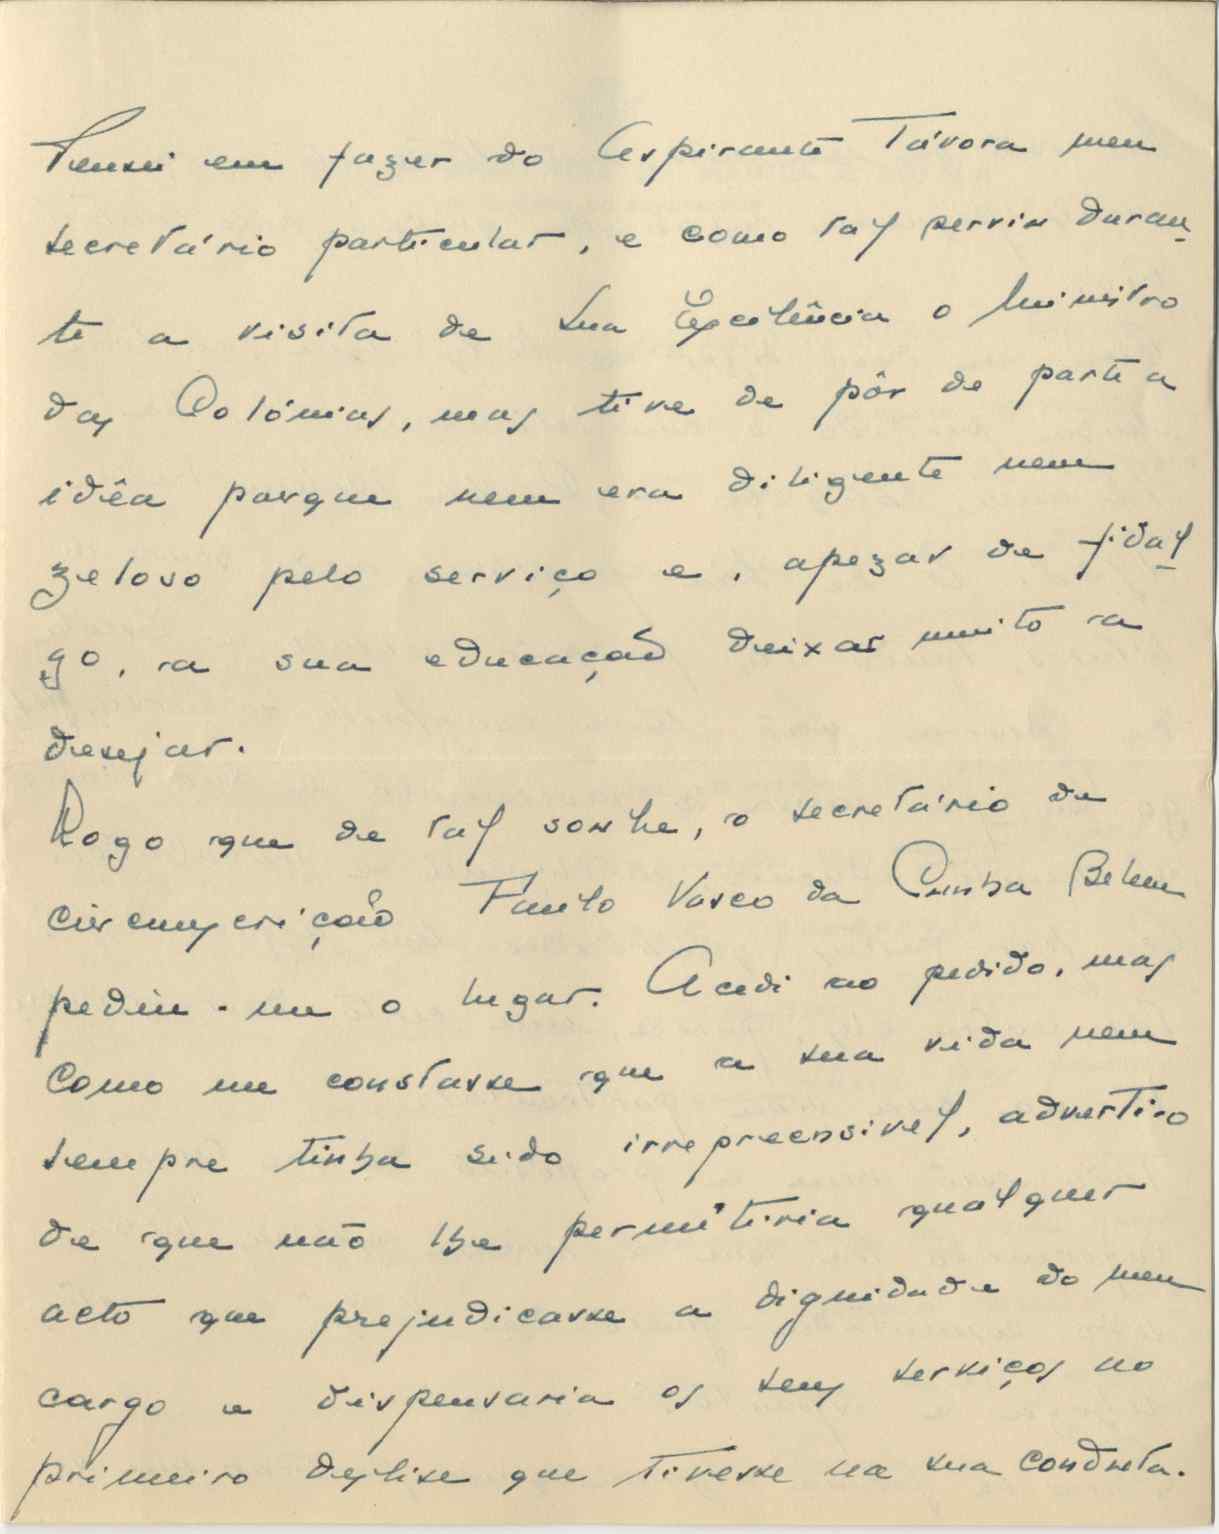 Pensei em fazer do Aspirante Távora meu
secretário particular, e como tal serviu duran-
te a visita de Sua Excelência o Ministro
das Colónias, mas tive de pôr de parte a
idêa porque nem era diligente nem
zeloso pelo serviço e, apezar de fidal-
go, a sua educação deixar muito a
desejar.
Logo que de tal soube, o secretário de
circunscrição Paulo Vasco da Cunha Belem
pediu-me o lugar. Acedi ao pedido, mas
como me constasse que a sua vida nem
sempre tinha sido irrepreensivel, adverti-o
de que não lhe permitiria qualquer
acto que prejudicasse a dignidade do meu
cargo e dispensaria os seus serviços no
primeiro deslise que tivesse na sua conduta.